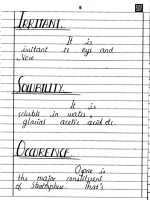 IRRITANT.
It is
irritant to eye and
Nose
SOLUBILITY.
It is
soluble in water,
glacial acetic acid etc.
OCCURENCE.
Ozone is
the major constituent
of Stratosphere. That's